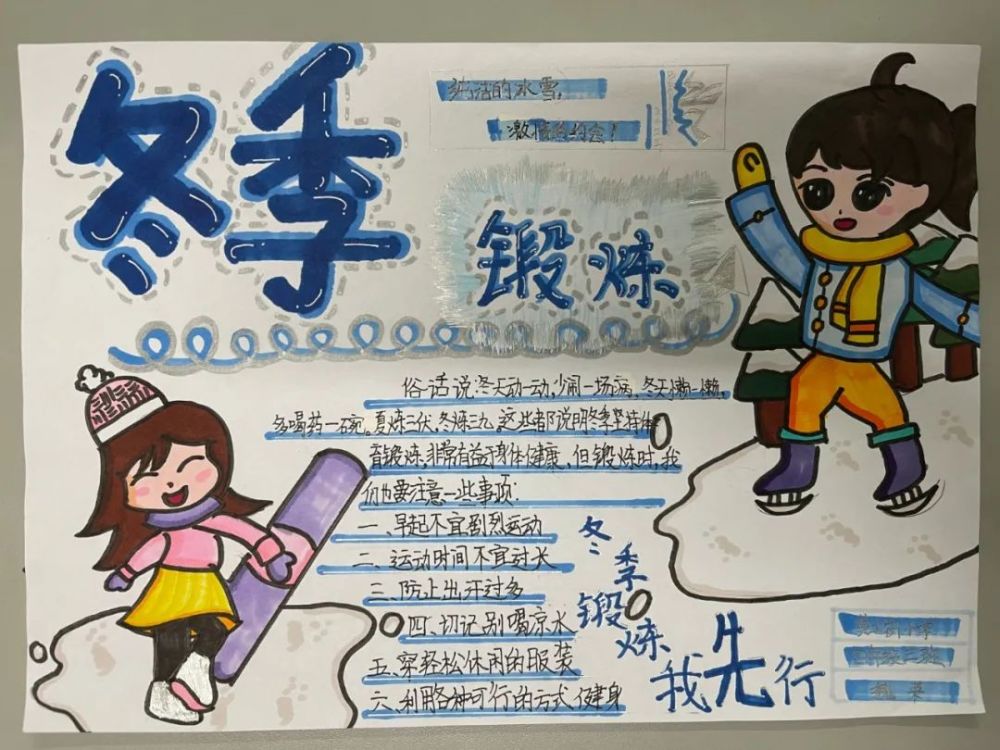 冬季
纯洁的冰雪,
激情的约会!
锻炼
俗话说:冬天动一动,少闹一场病,冬天懒一懒,
多喝药一碗。夏炼三伏,冬炼三九,这些都说明冬季坚持体
育锻炼,非常有益于身体健康,但锻炼时,我
们也要注意一些事项:
一、早起不宜剧烈运动
二、运动时间不宜过长
三、防止出汗过多
四、切记别喝凉水
五、穿轻松休闲的服装
六、利用各种可行的方式健身
冬季锻炼
我先行